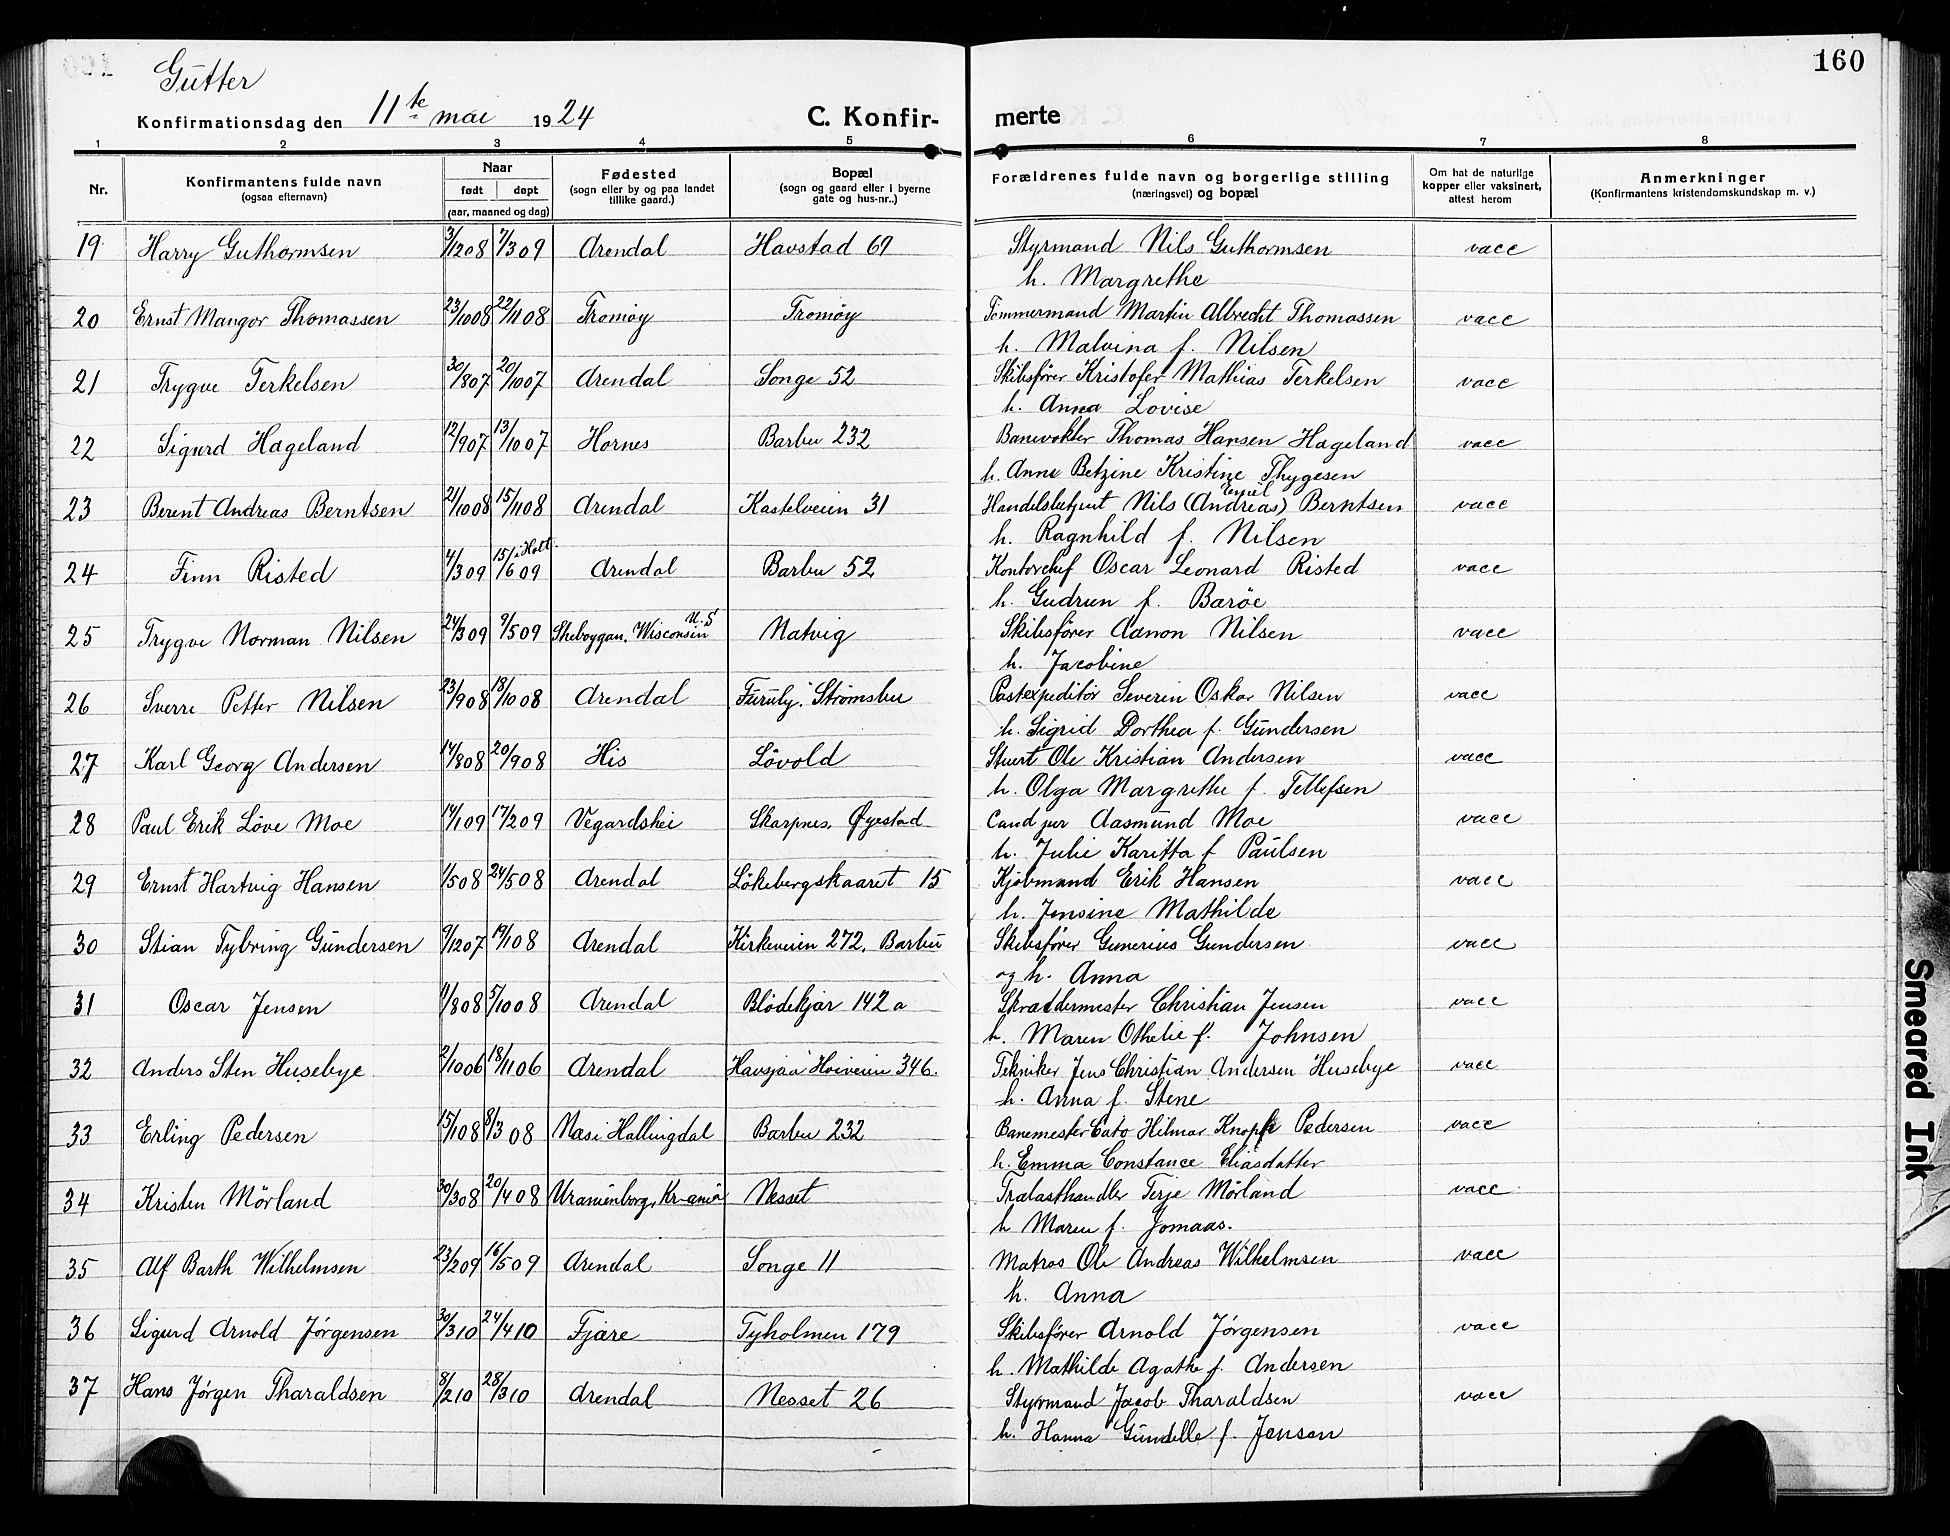 160
Gutter
Konfirmationsdag den 11te mai 1924 C. Konfir- merte
1 2 3 4 5 6 7 8
Nr. Konfirmantens fulde navn (ogsaa efternavn) Naar født døpt (aar, maaned og dag) Fødested (sogn eller by og paa landet tillike gaard.) Bopæl (sogn og gaard eller i byerne gate og hus-nr..) Forældrenes fulde navn og borgerlige stilling (næringsvei) og bopæl Om hat de naturlige kopper eller vaksinert, attest herom Anmerkninger (Konfirmantens kristendomskundskap m. v.)
19 Harry Guthormsen 3/12 08 7/3 09 Arendal Havstad 69 Styrmand Nils Guthormsen vacc
h. Margrethe
20 Ernst Mangor Thomassen 23/10 08 22/11 08 Tromøy Tromøy Tømmermand Martin Albrecht Thomassen vacc
h. Malvina f. Nilsen
21 Trygve Terkelsen 30/8 07 20/10 07 Arendal Songe 52 Skibsfører Kristofer Mathias Terkelsen vacc
h. Anna Lovise
22 Sigurd Hageland 12/9 07 13/10 07 Hornes Barbu 232 Banevokter Thomas Hansen Hageland vacc
h. Anne Betzine Kristine Thygesen
23 Berent Andreas Berntsen 21/10 08 15/11 08 Arendal Kastelveien 31 Handelsbetjent Nils (Andreas) Emil Berntsen vacc
h. Ragnhild f. Nilsen
24 Finn Risted 4/3 09 15/6 09 i Holt. Arendal Barbu 52 Kontorchef Oscar Leonard Risted vacc
h. Gudrun f. Barøe
25 Trygve Norman Nilsen 24/3 09 9/5 09 Sheboygan, Wisconsin U.S Natvig Skibsfører Aanon Nilsen vacc
h. Jacobine
26 Sverre Petter Nilsen 23/9 08 18/10 08 Arendal "Furuly" Strømsbu Postexpeditør Severin Oskar Nilsen vacc
h. Sigrid Dorthea f. Gundersen
27 Karl Georg Andersen 14/8 08 20/9 08 His Løvold Stuert Ole Kristian Andersen vacc
h. Olga Margrethe f. Tellefsen
28 Paul Erik Løve Moe 14/1 09 17/2 09 Vegardshei Skarpnes, Øyestad Cand jur Aasmund Moe vacc
h. Julie Karitta f. Paulsen
29 Ernst Hartvig Hansen 1/5 08 24/5 08 Arendal Løkebergskaaret 15 Kjøbmand Erik Hansen vacc
h. Jensine Mathilde
30 Stian Tybring Gundersen 9/12 07 19/1 08 Arendal Kirkeveien 272, Barbu Skibsfører Gunerius Gundersen vacc
og h. Anna
31 Oscar Jensen 11/8 08 5/10 08 Arendal Blødekjær 142 a Skræddermester Christian Jensen vacc
h. Maren Othelie f. Johnsen
32 Anders Sten Husebye 2/10 06 18/11 06 Arendal "Havsjaa" Høiveien 346. Tekniker Jens Christian Andersen Husebye vacc
h. Anna f. Stene
33 Erling Pedersen 15/1 08 8/3 08 Næs i Hallingdal Barbu 232 Banemester Cato Hilmar Knopf Pedersen vacc
h. Emma Constance Eliasdatter
34 Kristen Mørland 30/3 08 20/4 08 Uranienborg, Kr-ania Nesset Trælasthandler Terje Mørland vacc
h Maren f. Jomaas.
35 Alf Barth Wilhelmsen 23/2 09 16/5 09 Arendal Songe 11 Matros Ole Andreas Wilhelmsen vacc
h. Anna
36 Sigurd Arnold Jørgensen 30/3 10 24/4 10 Fjære Tyholmen 179 Skibsfører Arnold Jørgensen vacc
h. Mathilde Agathe f. Andersen
37 Hans Jørgen Tharaldsen 8/2 10 28/3 10 Arendal Nesset 26 Styrmand Jacob Tharaldsen vacc
h. Hanna Gundelle f. Jensen
Smeared Ink